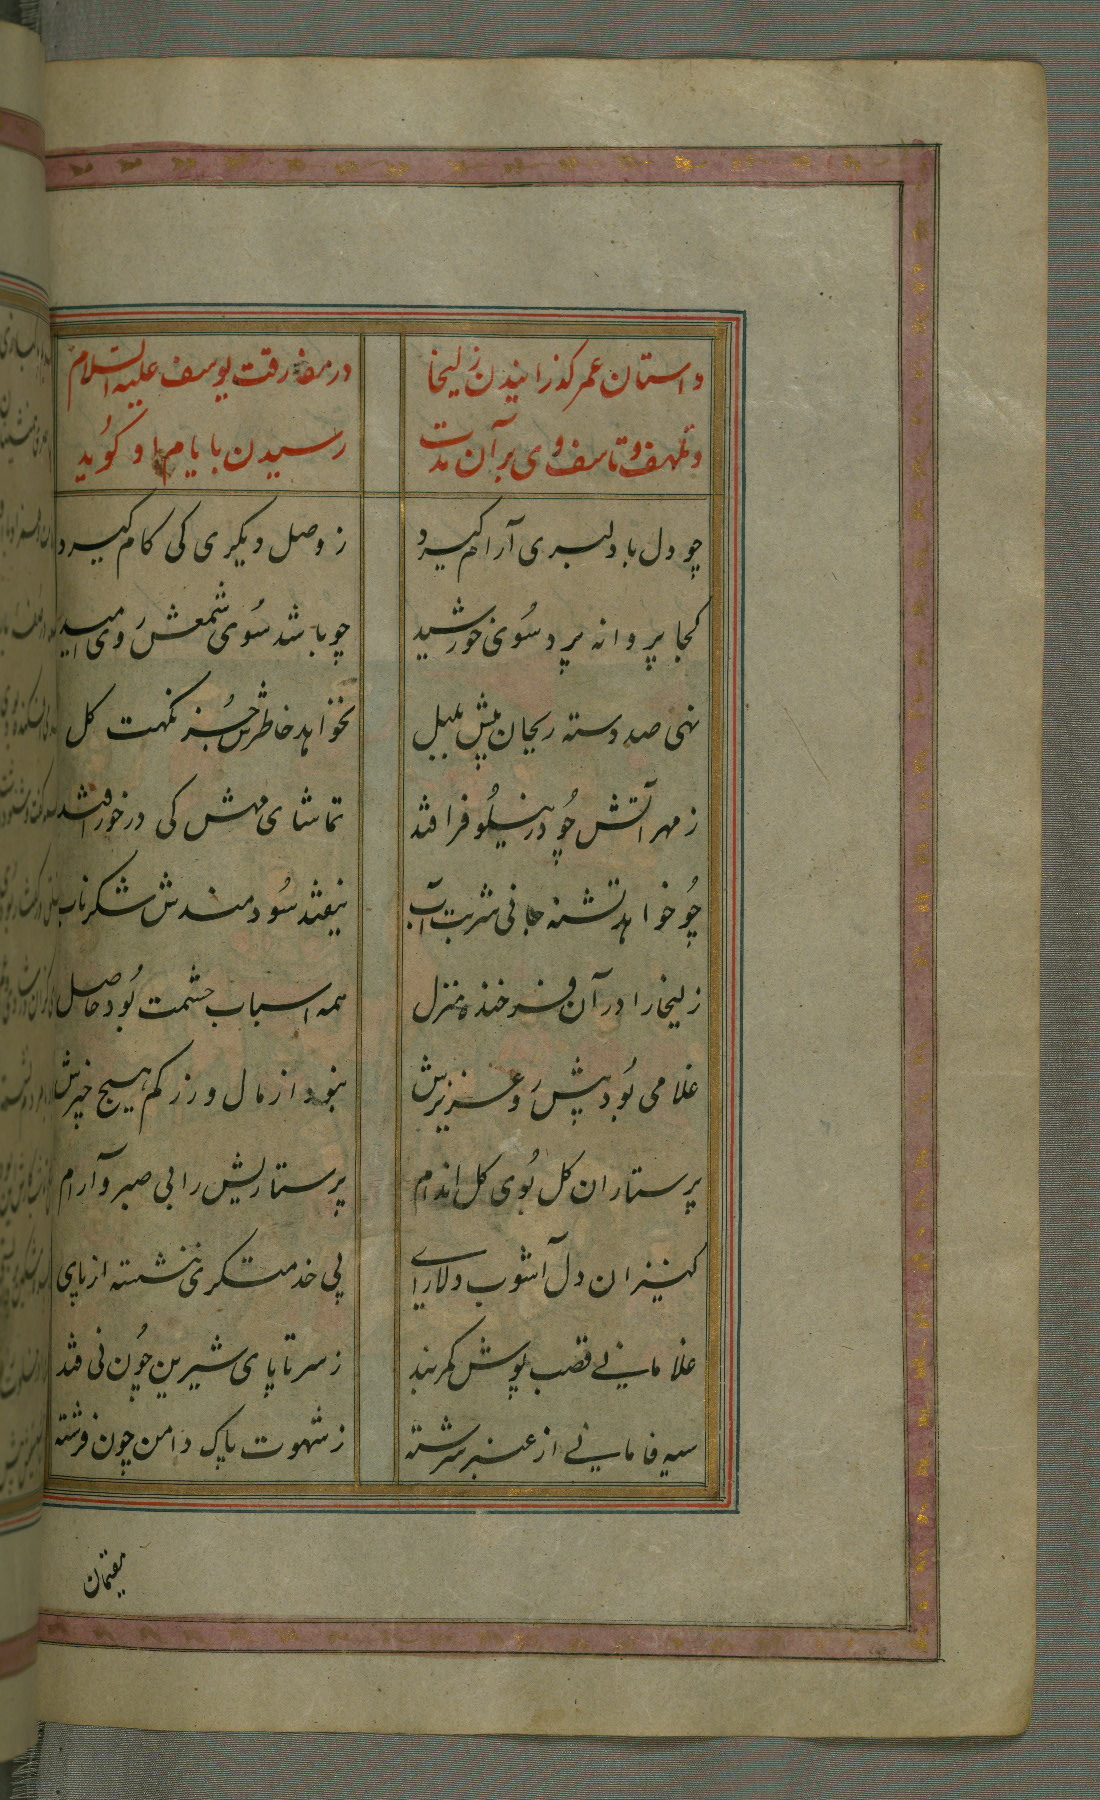 داستان عمر کذرانیدن زلیخا در مفارقت یوسف علیه السلام
و تلهف و تاسف وی بر آن مدت رسیدن بایام او کوید
چو دل با دلبری آرام کیرد ز وصل دیکری کی کام کیرد
کجا پروانه پرد سوی خورشید چو باشد سوی شمعش روی امید
نهی صد دسته ریحان پیش بلبل نخواهد خاطرش جز نکهت کل
ز مهر آتش چو در نیلوفر افتد تماشای مهش کی در خور افتد
چو خواهد تشنه جانی شربت آب نیفتد سودمندش شکر ناب
زلیخا را در آن فرخنده منزل همه اسباب حشمت بود حاصل
غلامی بود پیش رو عزیزش نبود از مال و زر کم هیچ چیزش
پرستاران کل بوی کل اندام پرستاریش را بی صبر و آرام
کنیزان دل آشوب دلارای پی خدمتکری ننشسته از پای
غلامانی قصب پوش کمربند ز سر تا پای شیرین چون نی قند
سیه فامانی از عنبر سرشته ز شهوت پاک دامن چون فرشته
مقیمان